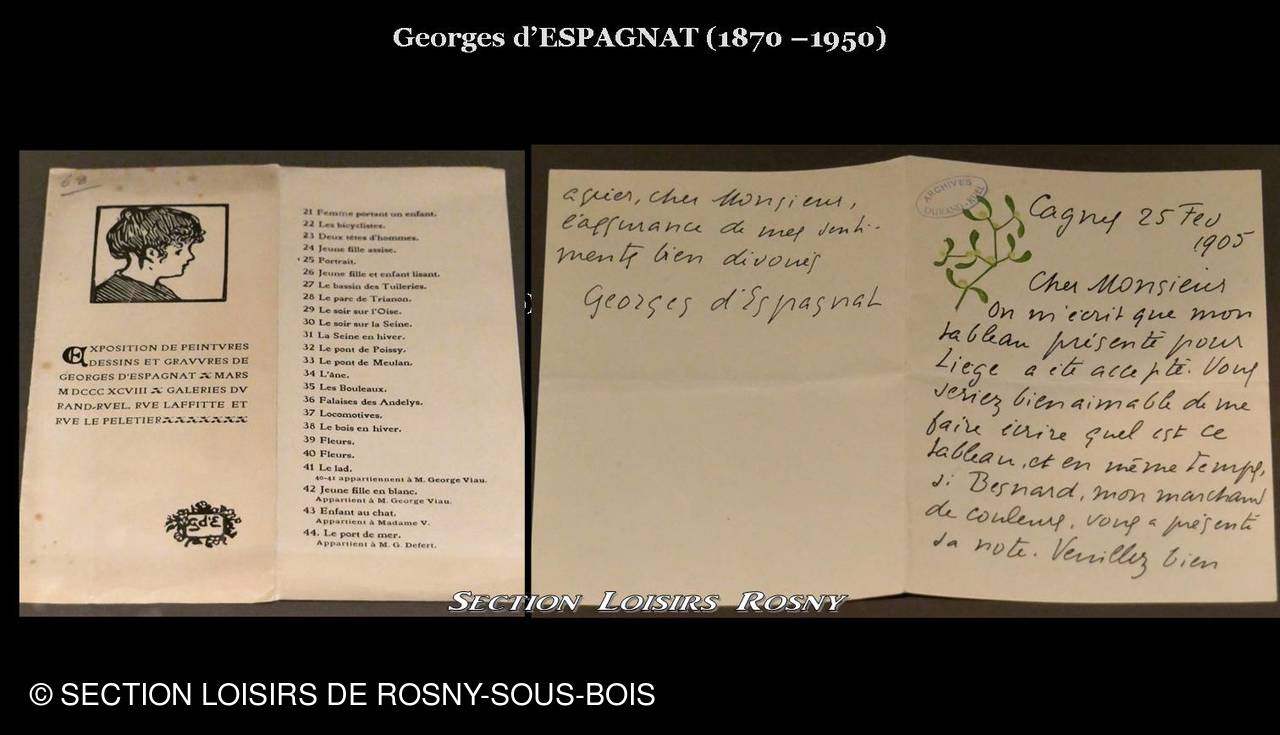 Georges d'ESPAGNAT (1870 –1950)
68
EXPOSITION DE PEINTVRES
DESSINS ET GRAVVRES DE
GEORGES D'ESPAGNAT MARS
M DCCC XCVIII GALERIES DV
RAND-RVEL, RVE LAFFITTE ET
RVE LE PELETIER
GdE
21 Femme portant un enfant.
22 Les bicyclistes.
23 Deux têtes d'hommes.
24 Jeune fille assise.
25 Portrait.
26 Jeune fille et enfant lisant.
27 Le bassin des Tuileries.
28 Le parc de Trianon.
29 Le soir sur l'Oise.
30 Le soir sur la Seine.
31 La Seine en hiver.
32 Le pont de Poissy.
33 Le pont de Meulan.
34 L'âne.
35 Les Bouleaux.
36 Falaises des Andelys.
37 Locomotives.
38 Le bois en hiver.
39 Fleurs.
40 Fleurs.
41 Le lad.
40-41 appartiennent à M. George Viau.
42 Jeune fille en blanc.
Appartient à M. George Viau.
43 Enfant au chat.
Appartient à Madame V.
44. Le port de mer.
Appartient à M. G. Defert.
)
agréer, cher Monsieur,
l'assurance de mes senti-
ments bien dévoués
Georges d'Espagnat
ARCHIVES
DURAND-RUEL
Cagnes 25 Fev
1905
Cher Monsieur
On m'écrit que mon
tableau présenté pour
Liège a été accepté. Vous
seriez bien aimable de me
faire écrire quel est ce
tableau, et en même temps,
si Besnard, mon marchand
de couleurs, vous a présenté
sa note. Veuillez bien
SECTION LOISIRS ROSNY
© SECTION LOISIRS DE ROSNY-SOUS-BOIS